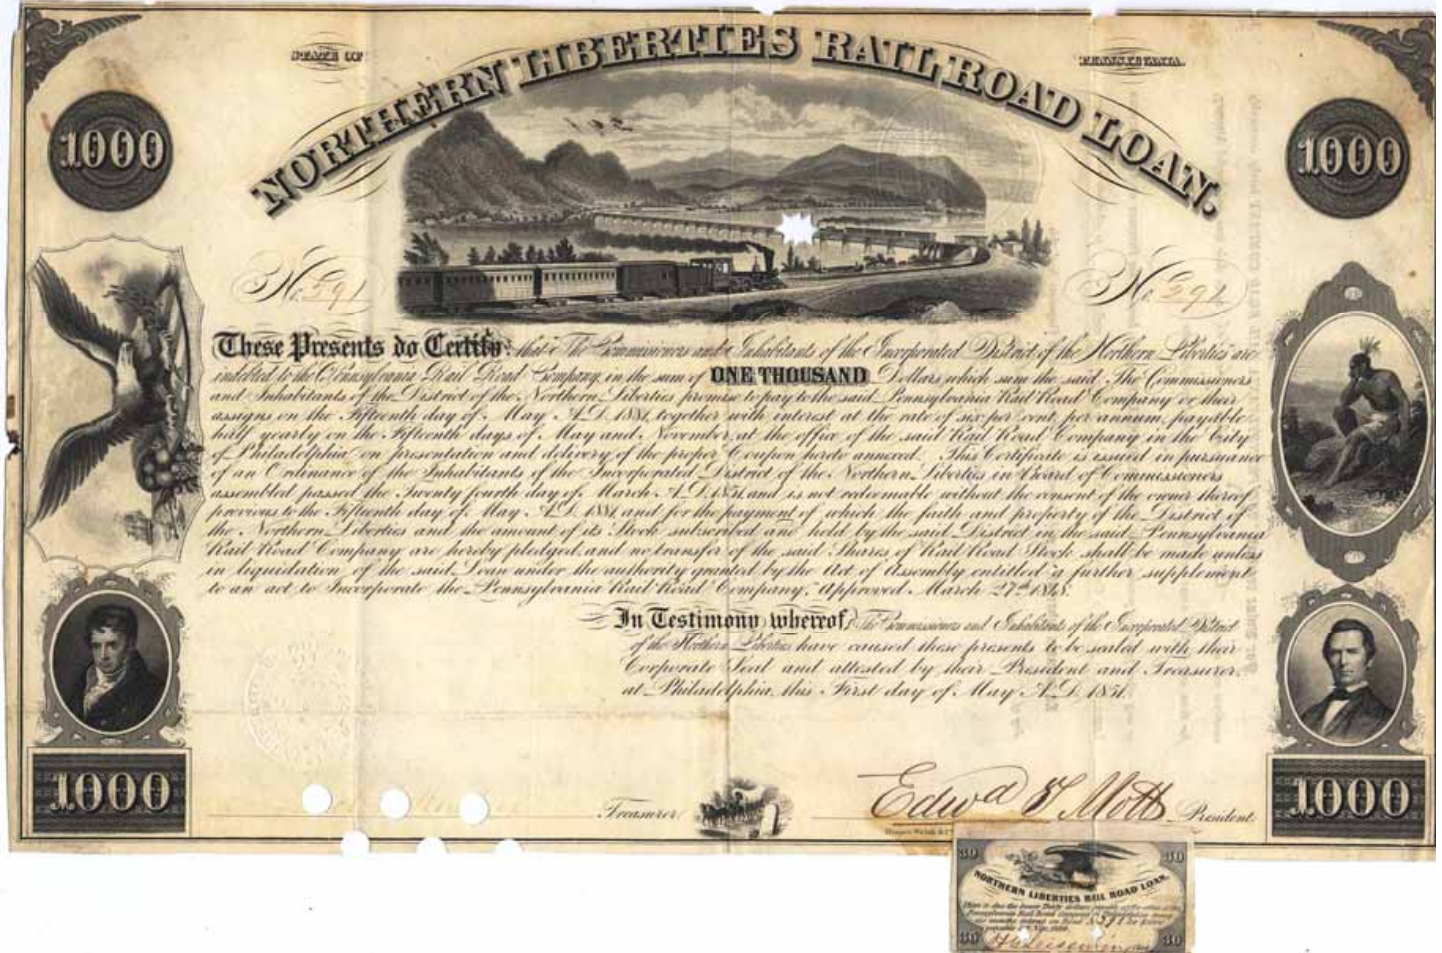 STATE OF
PENNSYLVANIA.
NORTHERN LIBERTIES RAIL ROAD LOAN.
1000
1000
No. 591
No. 591
These Presents do Certify: that The Commissioners and Inhabitants of the Incorporated District of the Northern Liberties are
indebted to the Pennsylvania Rail Road Company, in the sum of ONE THOUSAND Dollars which sum the said, The Commissioners
and Inhabitants of the District of the Northern Liberties promise to pay to the said Pennsylvania Rail Road Company or their
assigns on the Fifteenth day of May A.D. 1881, together with interest at the rate of six per cent. per annum, payable
half yearly on the Fifteenth days of May and November, at the office of the said Rail Road Company in the City
of Philadelphia on presentation and delivery of the proper Coupon hereto annexed. This Certificate is issued in pursuance
of an Ordinance of the Inhabitants of the Incorporated District of the Northern Liberties in Board of Commissioners
assembled passed the Twenty fourth day of March A.D. 1851, and is not redeemable without the consent of the owner thereof
previous to the Fifteenth day of May A.D. 1881, and for the payment of which the faith and property of the District of
the Northern Liberties and the amount of its Stock subscribed and held by the said District in the said Pennsylvania
Rail Road Company are hereby pledged, and no transfer of the said Shares of Rail Road Stock shall be made unless
in liquidation of the said Loan under the authority granted by the Act of Assembly entitled "a further supplement
to an act to Incorporate the Pennsylvania Rail Road Company," Approved March 27th 1848.
In Testimony whereof, The Commissioners and Inhabitants of the Incorporated District
of the Northern Liberties have caused these presents to be sealed with their
Corporate Seal and attested by their President and Treasurer,
at Philadelphia, this First day of May A.D. 1851.
1000
1000
Treasurer
Edwd T Mott President
30 30
NORTHERN LIBERTIES RAIL ROAD LOAN.
30 30